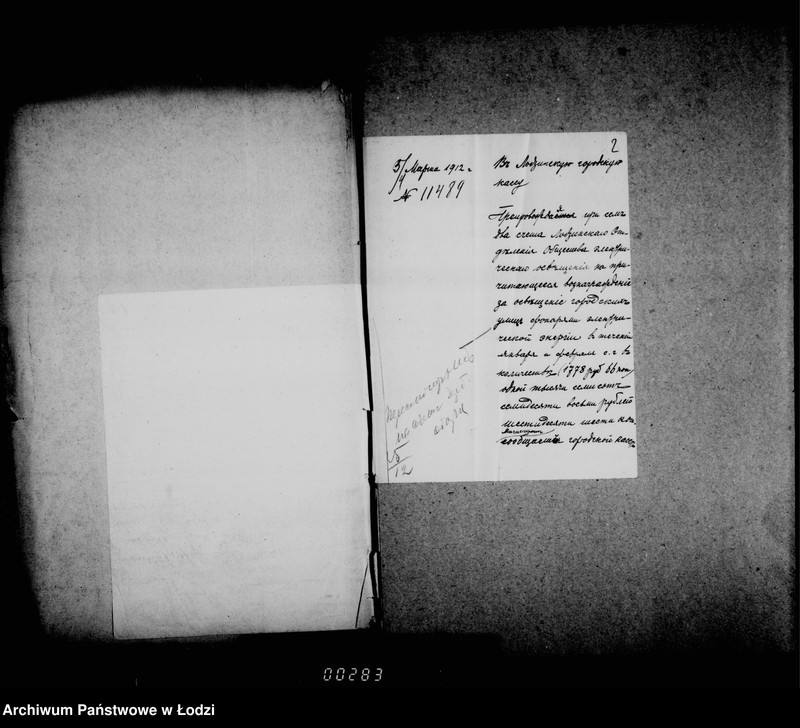 2
3/4 Марта 1912 г
№ 11489
Въ Лодзинскую городскую
кассу
Препровождая при семъ
два счета Лодзинскаго От-
дѣленія Общества электри-
ческаго освѣщенія на при-
читающееся вознагражденіе
за освѣщеніе городскихъ
улицъ фонарями электри-
ческой энергіи въ теченіи
января и февраля с.г. въ
количествѣ (1778 руб 66 коп
одной тысячи семисотъ
семидесяти восьми рублей
шестидесяти шести коп.
Магистратъ
сообщаетъ городской кассѣ
5/12
00283
Archiwum Państwowe w Łodzi